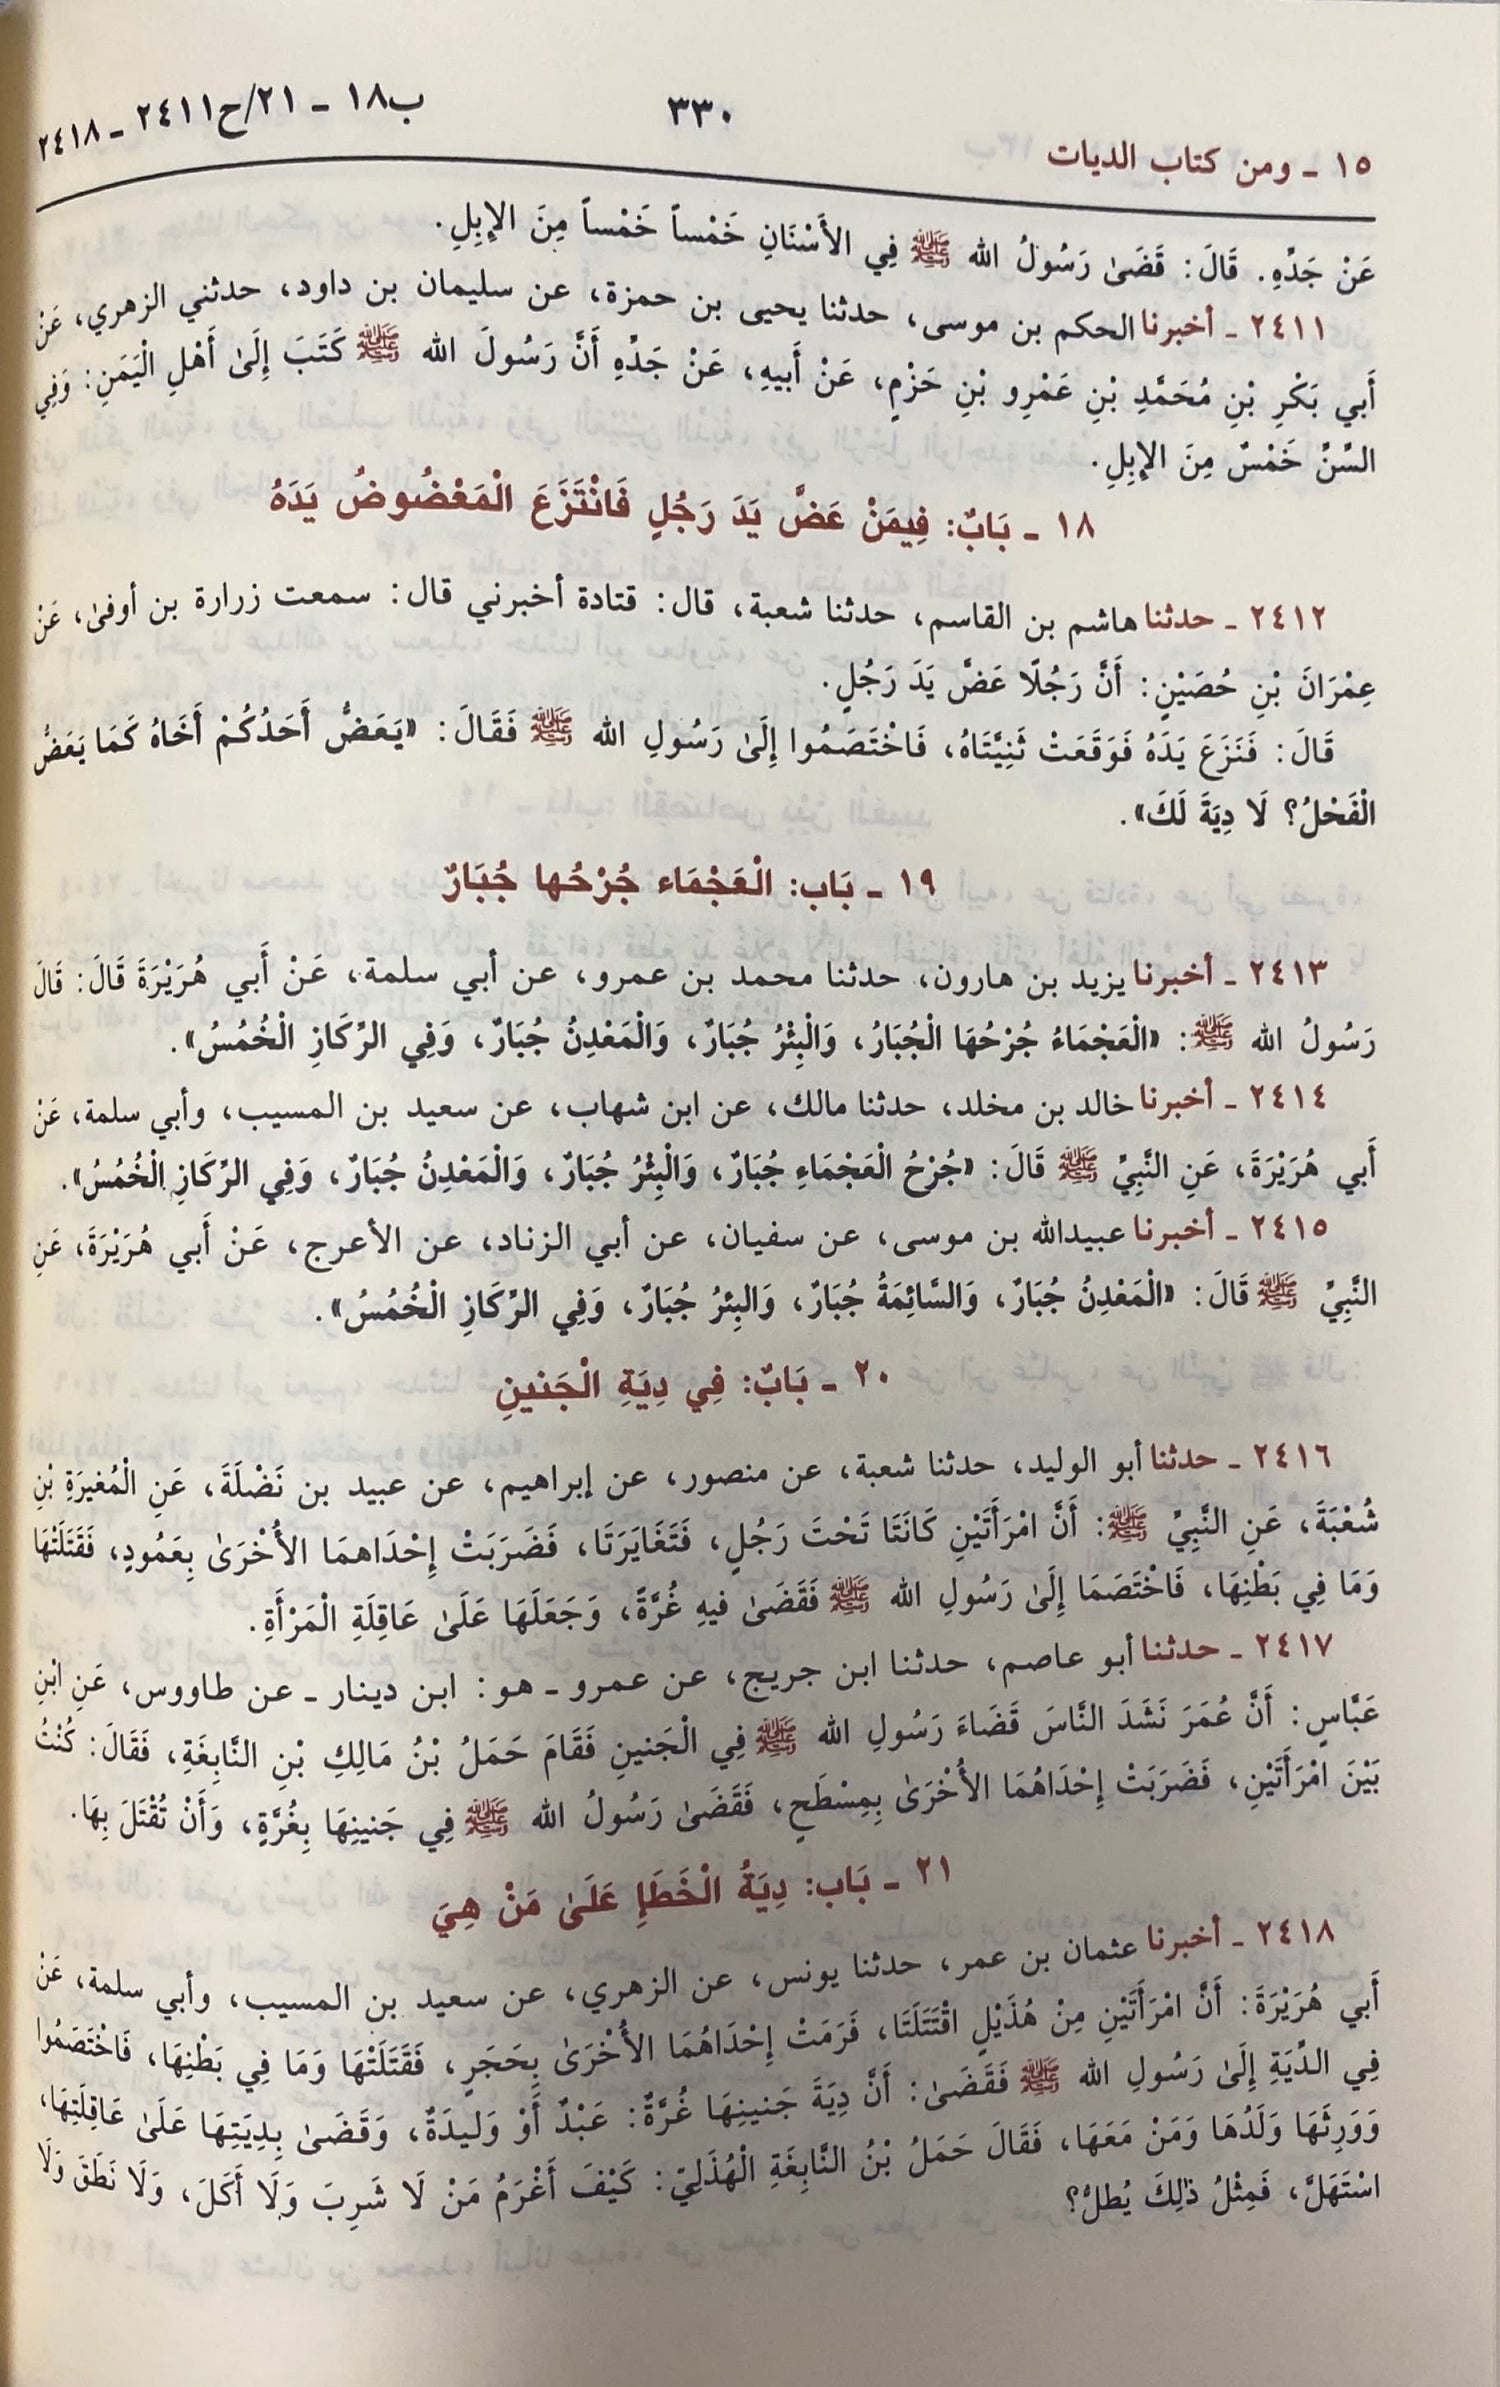 ب١٨ - ٢١/ح٢٤١١ - ٢٤١٨
٣٣٠
١٥ - ومن كتاب الديات
عَنْ جَدِّهِ. قَالَ: قَضَىٰ رَسُولُ الله ﷺ فِي الأَسْنَانِ خَمْساً خَمْساً مِنَ الإِبِلِ.
٢٤١١ - أخبرنا الحكم بن موسى، حدثنا يحيى بن حمزة، عن سليمان بن داود، حدثني الزهري، عَنْ
أَبي بَكْرِ بْنِ مُحَمَّدِ بْنِ عَمْرِو بْنِ حَزْمٍ، عَنْ أَبيهِ، عَنْ جَدِّهِ أَنَّ رَسُولَ الله ﷺ كَتَبَ إِلَىٰ أَهْلِ الْيَمَنِ: وَفِي
السِّنِّ خَمْسٌ مِنَ الإِبِلِ.
١٨ - بَابٌ: فِيمَنْ عَضَّ يَدَ رَجُلٍ فَانْتَزَعَ الْمَعْضُوضُ يَدَهُ
٢٤١٢ - حدثنا هاشم بن القاسم، حدثنا شعبة، قال: قتادة أخبرني قال: سمعت زرارة بن أوفىٰ، عَنْ
عِمْرَانَ بْنِ حُصَيْنٍ: أَنَّ رَجُلًا عَضَّ يَدَ رَجُلٍ.
قَالَ: فَنَزَعَ يَدَهُ فَوَقَعَتْ ثَنِيَّتَاهُ، فَاخْتَصَمُوا إِلَىٰ رَسُولِ الله ﷺ فَقَالَ: «يَعَضُّ أَحَدُكُمْ أَخَاهُ كَمَا يَعَضُّ
الْفَحْلُ؟ لَا دِيَةَ لَكَ».
١٩ - بَاب: الْعَجْمَاء جُرْحُها جُبَارٌ
٢٤١٣ - أخبرنا يزيد بن هارون، حدثنا محمد بن عمرو، عن أبي سلمة، عَنْ أَبي هُرَيْرَةَ قَالَ: قَالَ
رَسُولُ الله ﷺ: «الْعَجْمَاءُ جُرْحُهَا الْجُبَارُ، وَالْبِئْرُ جُبَارٌ، وَالْمَعْدِنُ جُبَارٌ، وَفِي الرِّكَازِ الْخُمُسُ».
٢٤١٤ - أخبرنا خالد بن مخلد، حدثنا مالك، عن ابن شهاب، عن سعيد بن المسيب، وأبي سلمة، عَنْ
أَبي هُرَيْرَةَ، عَنِ النَّبِيِّ ﷺ قَالَ: «جُرْحُ الْعَجْمَاءِ جُبَارٌ، وَالْبِئْرُ جُبَارٌ، وَالْمَعْدِنُ جُبَارٌ، وَفِي الرِّكَازِ الْخُمُسُ».
٢٤١٥ - أخبرنا عبيدالله بن موسى، عن سفيان، عن أبي الزناد، عن الأعرج، عَنْ أَبي هُرَيْرَةَ، عَنِ
النَّبِيِّ ﷺ قَالَ: «الْمَعْدِنُ جُبَارٌ، وَالسَّائِمَةُ جُبَارٌ، وَالبِئرُ جُبَارٌ، وَفِي الرِّكَازِ الْخُمُسُ».
٢٠ - بَابٌ: فِي دِيَةِ الْجَنينِ
٢٤١٦ - حدثنا أبو الوليد، حدثنا شعبة، عن منصور، عن إبراهيم، عن عبيد بن نَضْلَةَ، عَنِ الْمُغيرَةِ بْنِ
شُعْبَةَ، عَنِ النَّبِيِّ ﷺ: أَنَّ امْرَأَتَيْنِ كَانَتَا تَحْتَ رَجُلٍ، فَتَغَايَرَتَا، فَضَرَبَتْ إِحْدَاهمَا الأُخْرَىٰ بِعَمُودٍ، فَقَتَلَتْهَا
وَمَا فِي بَطْنِهَا، فَاخْتَصَمَا إِلَىٰ رَسُولِ الله ﷺ فَقَضَىٰ فيهِ غُرَّةً، وَجَعَلَهَا عَلَىٰ عَاقِلَةِ الْمَرْأَةِ.
٢٤١٧ - حدثنا أبو عاصم، حدثنا ابن جريج، عن عمرو - هو: ابن دينار - عن طاووس، عَنِ ابْنِ
عَبَّاسٍ: أَنَّ عُمَرَ نَشَدَ النَّاسَ قَضَاءَ رَسُولِ الله ﷺ فِي الْجَنينِ فَقَامَ حَمَلُ بْنُ مَالِكِ بْنِ النَّابِغَةِ، فَقَالَ: كُنْتُ
بَيْنَ امْرَأَتَيْنِ، فَضَرَبَتْ إِحْدَاهُمَا الأُخْرَىٰ بِمِسْطَحٍ، فَقَضَىٰ رَسُولُ الله ﷺ فِي جَنينِهَا بِغُرَّةٍ، وَأَنْ تُقْتَلَ بِهَا.
٢١ - بَاب: دِيَةُ الْخَطَإِ عَلَىٰ مَنْ هِيَ
٢٤١٨ - أخبرنا عثمان بن عمر، حدثنا يونس، عن الزهري، عن سعيد بن المسيب، وأبي سلمة، عَنْ
أَبي هُرَيْرَةَ: أَنَّ امْرَأَتَيْنِ مِنْ هُذَيْلٍ اقْتَتَلَتَا، فَرَمَتْ إِحْدَاهُمَا الأُخْرَىٰ بِحَجَرٍ، فَقَتَلَتْهَا وَمَا فِي بَطْنِهَا، فَاخْتَصَمُوا
فِي الدِّيَةِ إِلَىٰ رَسُولِ الله ﷺ فَقَضَىٰ: أَنَّ دِيَةَ جَنينِهَا غُرَّةٌ: عَبْدٌ أَوْ وَليدَةٌ، وَقَضَىٰ بِدِيَتِهَا عَلَىٰ عَاقِلَتِهَا،
وَوَرِثَهَا وَلَدُهَا وَمَنْ مَعَهَا، فَقَالَ حَمَلُ بْنُ النَّابِغَةِ الْهُذَلِيّ: كَيْفَ أَغْرَمُ مَنْ لَا شَرِبَ وَلَا أَكَلَ، وَلَا نَطَقَ وَلَا
اسْتَهَلَّ، فَمِثْلُ ذٰلِكَ يُطلُّ؟